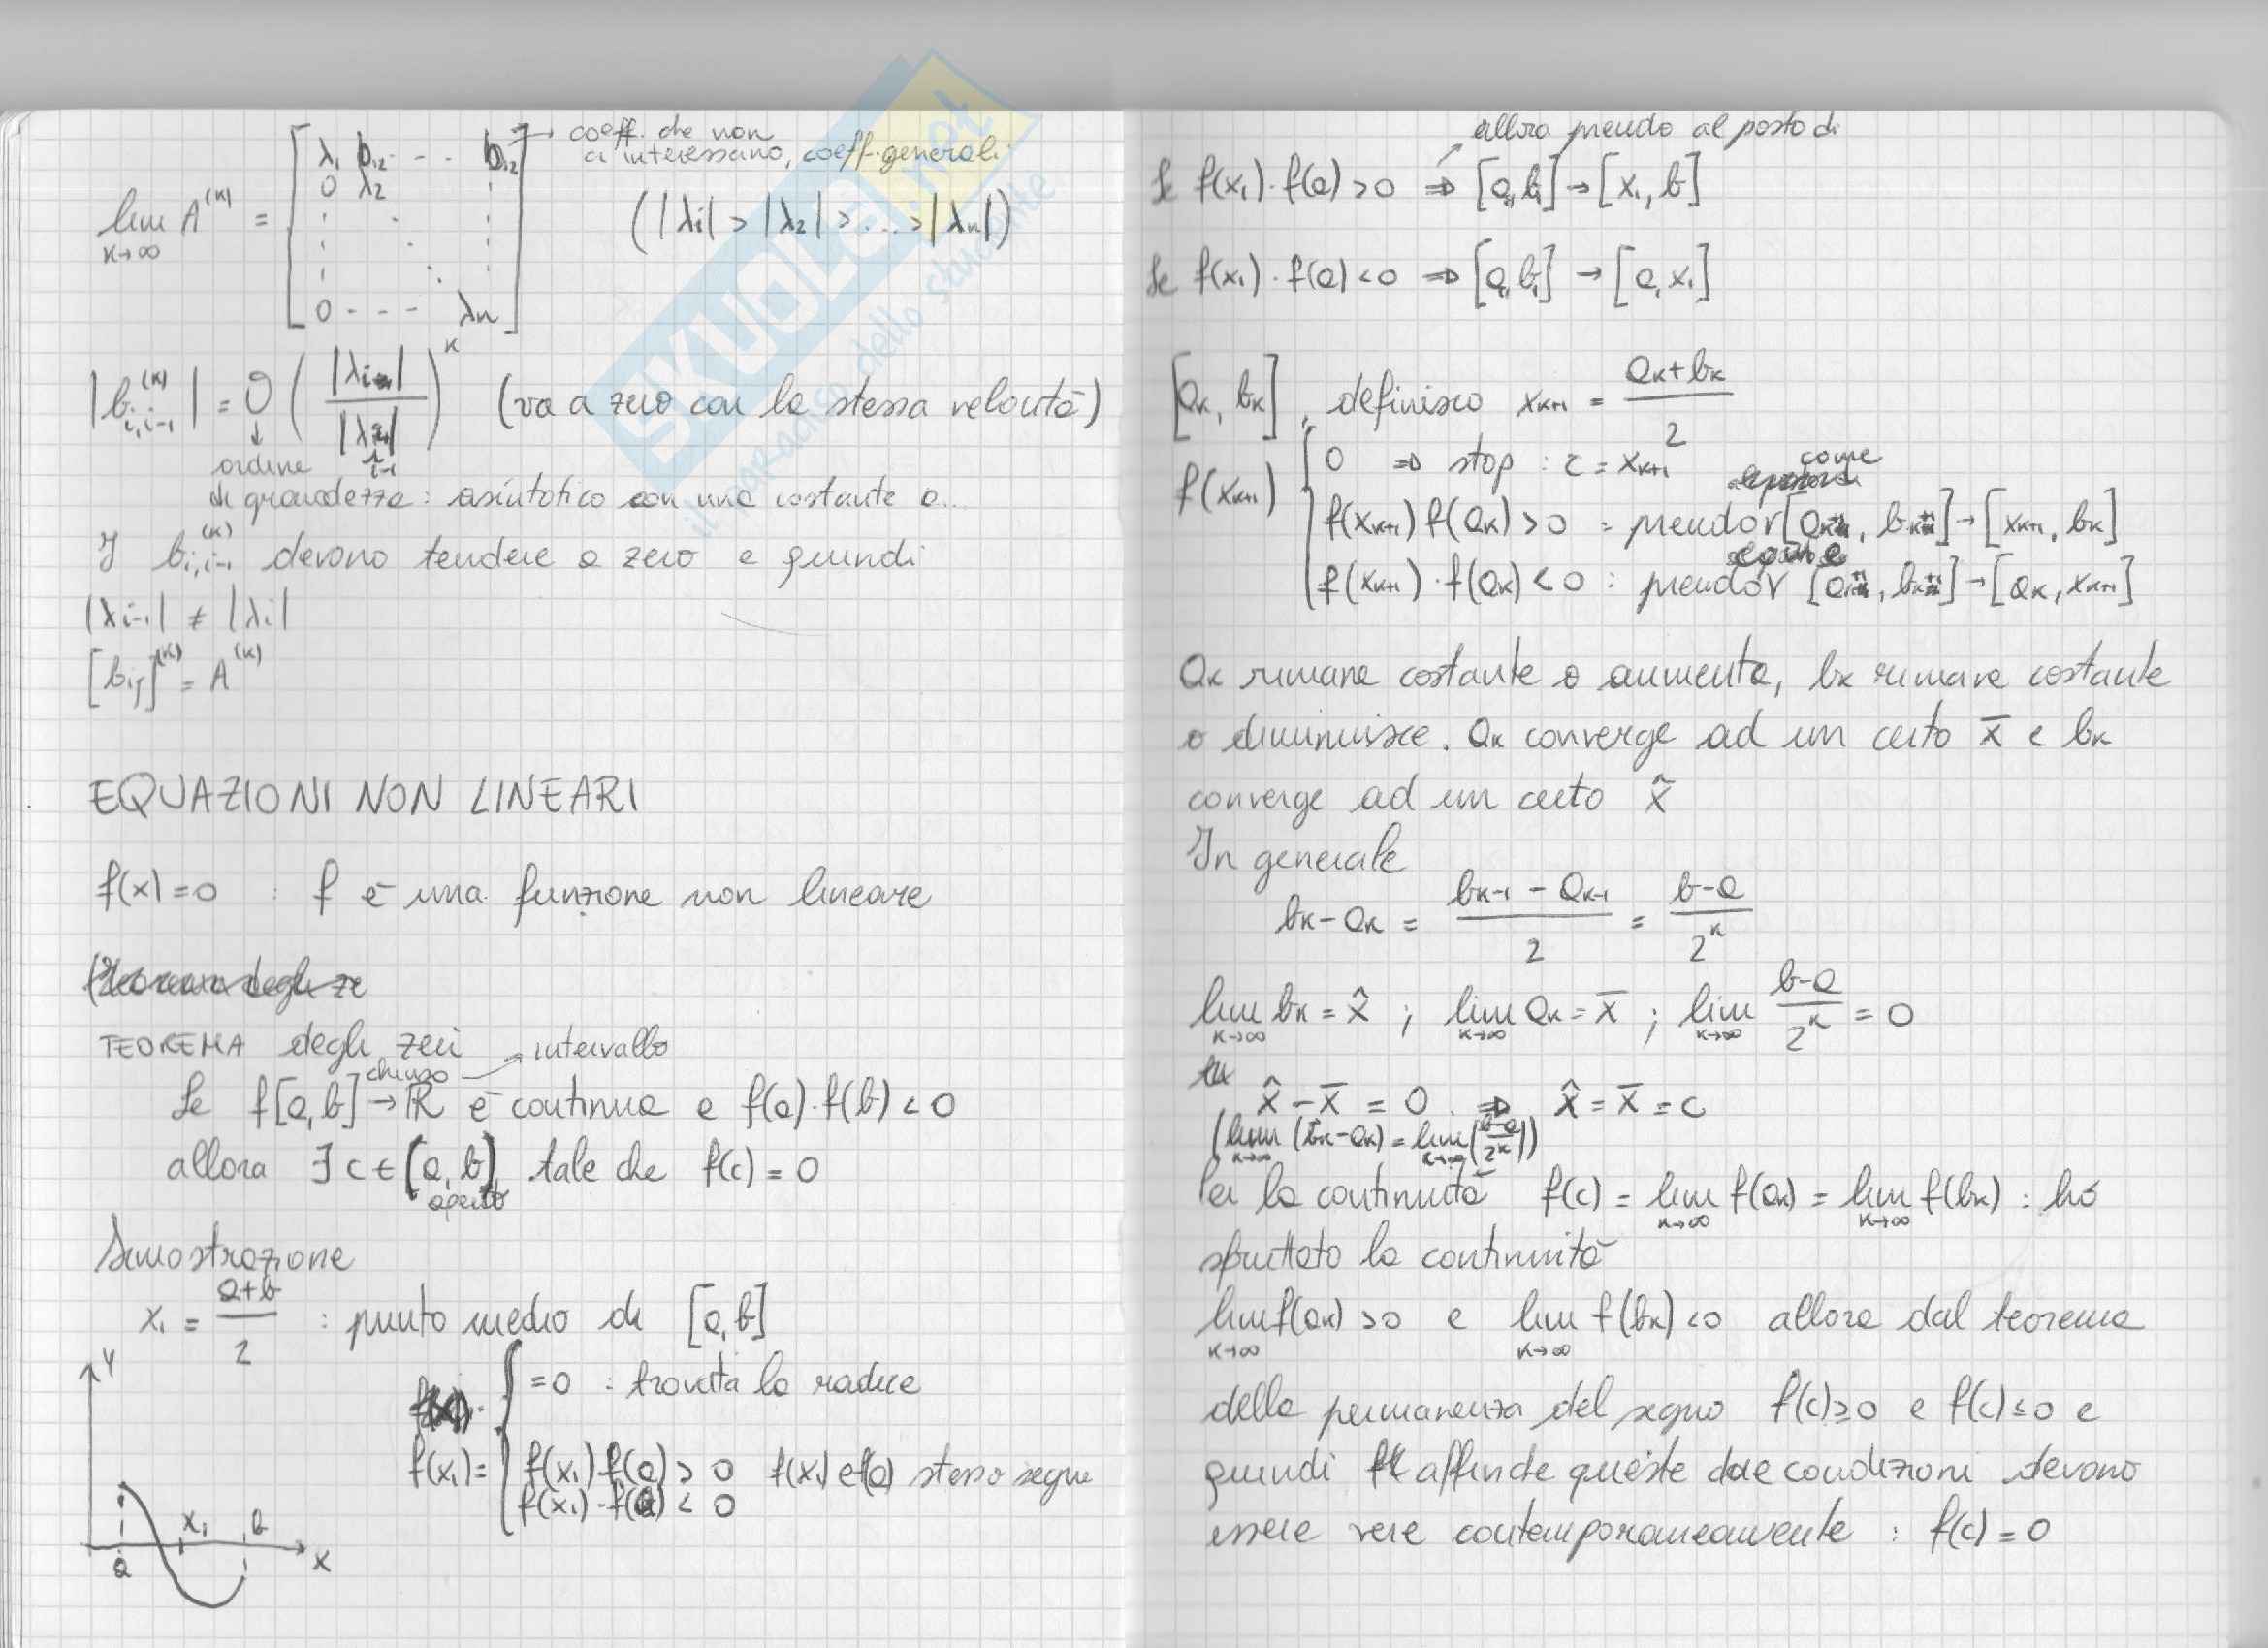 lim A^(k) = [ λ1 b12 - - - b12
k→∞
0 λ2
0 - - - λn ]
→ coeff. che non
ci interessano, coeff. generali
( |λi| > |λ2| > ... > |λn| )
| b i,i-1 ^(k) | = O ( |λi| / |λi-1| )^k (va a zero con la stessa velocità)
↓
ordine
di grandezza: asintotico con una costante a...
I b i,i-1 ^(k) devono tendere a zero e quindi
|λi-1| ≠ |λi|
[bij]^(k) = A^(k)
EQUAZIONI NON LINEARI
f(x) = 0 : f è una funzione non lineare
TEOREMA degli zeri
chiuso → intervallo
Se f[a,b] → ℝ è continua e f(a)·f(b) < 0
allora ∃ c ∈ (a,b) tale che f(c) = 0
aperto
Dimostrazione
x1 = (a+b)/2 : punto medio di [a,b]
f(x1) = { = 0 : trovata la radice
f(x1)·f(a) > 0 f(x1) e f(a) stesso segno
f(x1)·f(a) < 0
y
x1 b
a x
allora prendo al posto di
Se f(x1)·f(a) > 0 ⇒ [a,b] → [x1,b]
Se f(x1)·f(a) < 0 ⇒ [a,b] → [a,x1]
[ak, bk], definisco xk+1 = (ak+bk)/2
f(xk+1) { 0 ⇒ stop : c = xk+1
come
f(xk+1) f(ak) > 0 : prendo [ak+1, bk+1] → [xk+1, bk]
come
f(xk+1)·f(ak) < 0 : prendo [ak+1, bk+1] → [ak, xk+1]
ak rimane costante o aumenta, bk rimane costante
o diminuisce. ak converge ad un certo x̄ e bk
converge ad un certo x̃
In generale
bk - ak = (bk-1 - ak-1)/2 = (b-a)/2^k
lim bk = x̂ ; lim ak = x̄ ; lim (b-a)/2^k = 0
k→∞ k→∞ k→∞
x̂ - x̄ = 0 ⇒ x̂ = x̄ = c
(lim (bk-ak) = lim ((b-a)/2^k))
k→∞ k→∞
Per la continuità f(c) = lim f(ak) = lim f(bk) : ho
k→∞ k→∞
sfruttato la continuità
lim f(ak) > 0 e lim f(bk) < 0 allora dal teorema
k→∞ k→∞
della permanenza del segno f(c) ≥ 0 e f(c) ≤ 0 e
quindi affinché queste due condizioni devono
essere vere contemporaneamente : f(c) = 0
SKUOLA.net
il paradiso dello studente